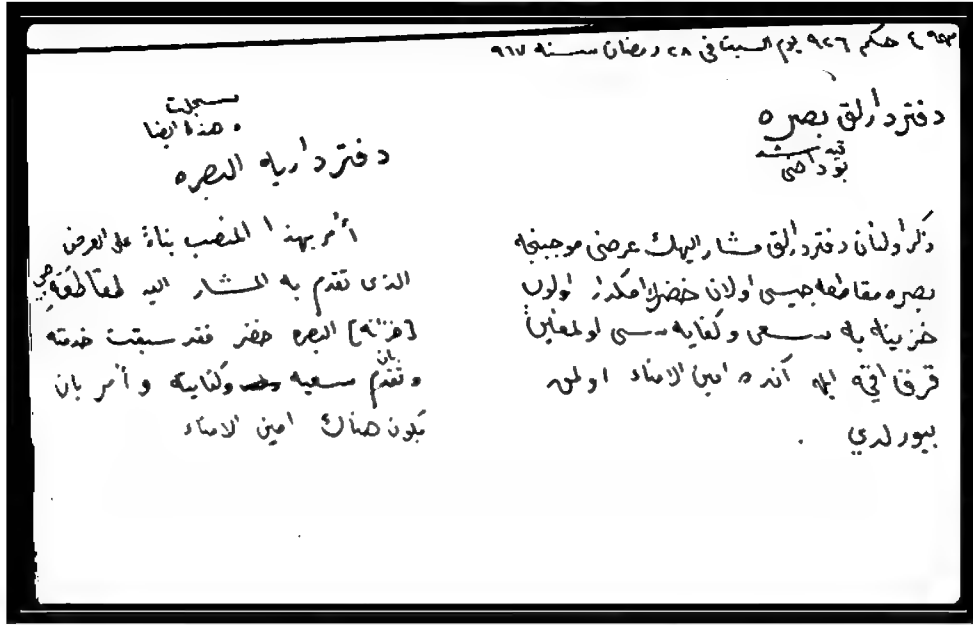 ٤ حكم ٩٢٦ يوم السبت في ٢٨ رمضان سنه ٩٦٧
دفتردارلق بصره
بوداخى
ذكر اولنان دفتردارلق مشار اليهك عرضى موجبنجه
بصره مقاطعه جيسى اولان خضرك امكدار اولوب
خزينه يه سعى وكفايه سى اولمغين
قرق اقچه ايله آنده امين الامناء اولمق
بيورلدي .
سجلت
وهذه ايضا
دفترداريه البصره
أمر بهذا المنصب بناءً على العرض
الذى تقدم به المشار اليه لمقاطعه جي
[خزانة] البصره خضر فقد سبقت خدمته
وتقدم بان سعيه وكفايته وأمر بان
يكون هناك امين الامناء